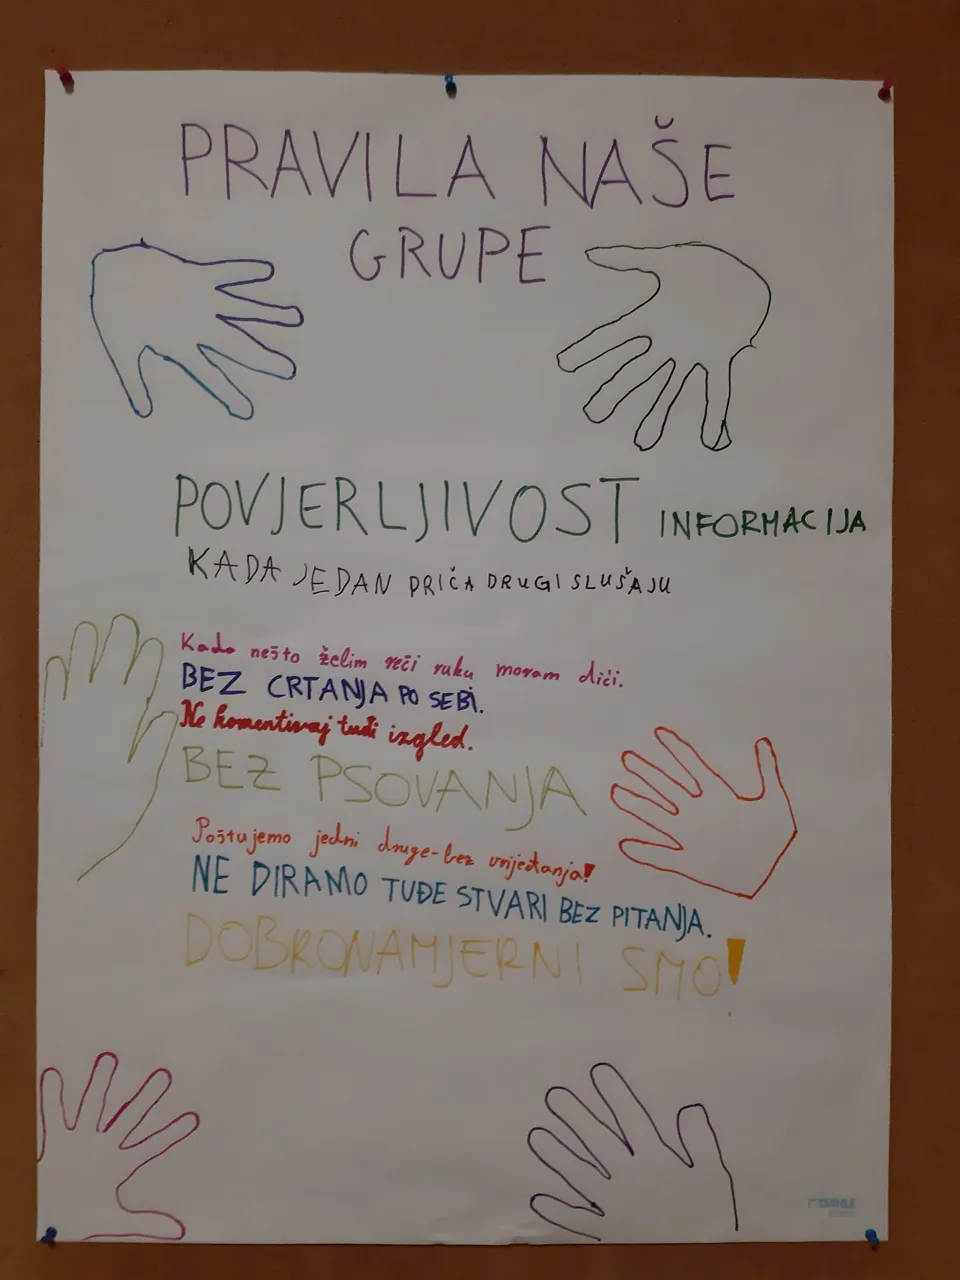 PRAVILA NAŠE
GRUPE
POVJERLJIVOST INFORMACIJA
KADA JEDAN PRIČA DRUGI SLUŠAJU
Kada nešto želim reči ruku moram dići.
BEZ CRTANJA PO SEBI.
Ne komentiraj tuđi izgled.
BEZ PSOVANJA
Poštujemo jedni druge-bez vrijeđanja!
NE DIRAMO TUĐE STVARI BEZ PITANJA.
DOBRONAMJERNI SMO!